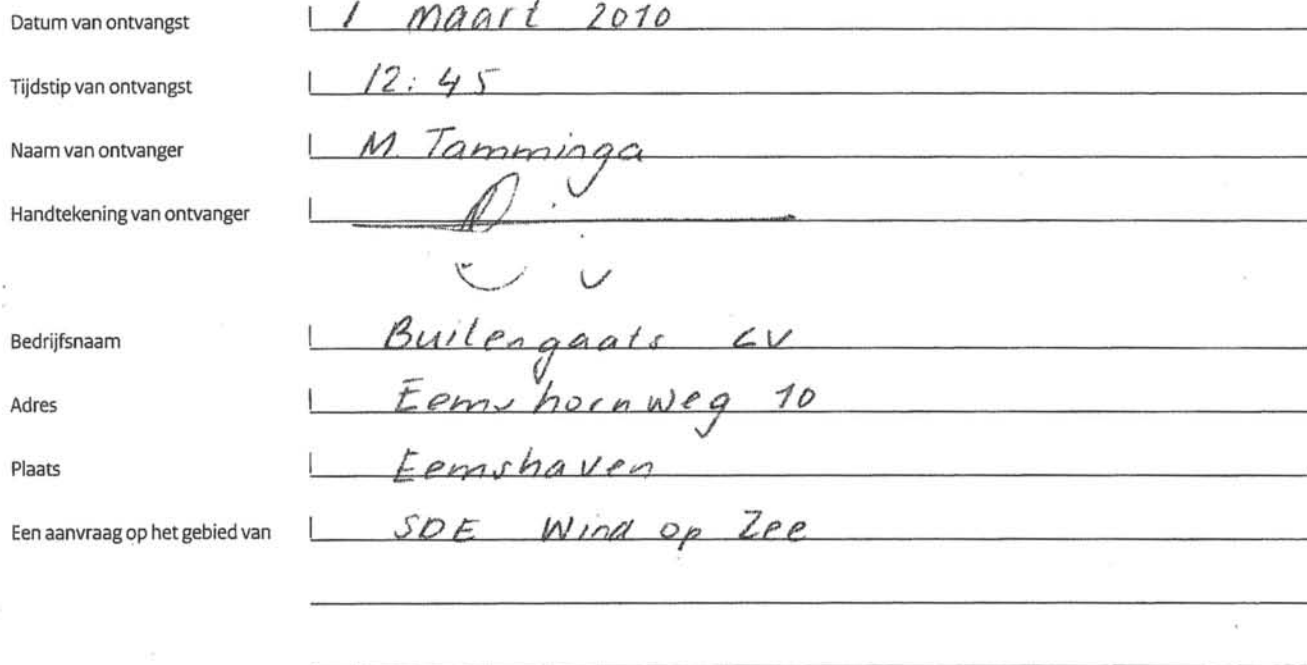 Datum van ontvangst 1 maart 2010
Tijdstip van ontvangst 12:45
Naam van ontvanger M. Tamminga
Handtekening van ontvanger
Bedrijfsnaam Buitengaats CV
Adres Eemshornweg 10
Plaats Eemshaven
Een aanvraag op het gebied van SDE Wind op Zee